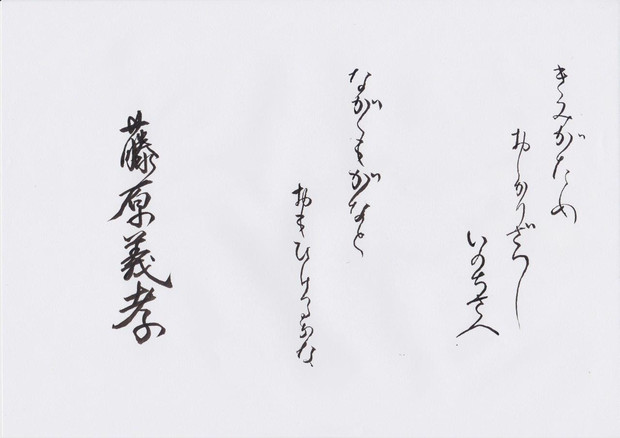 きみがため
おしかりざりし
いのちさへ
ながくもがなと
おもひけるかな
藤原義孝